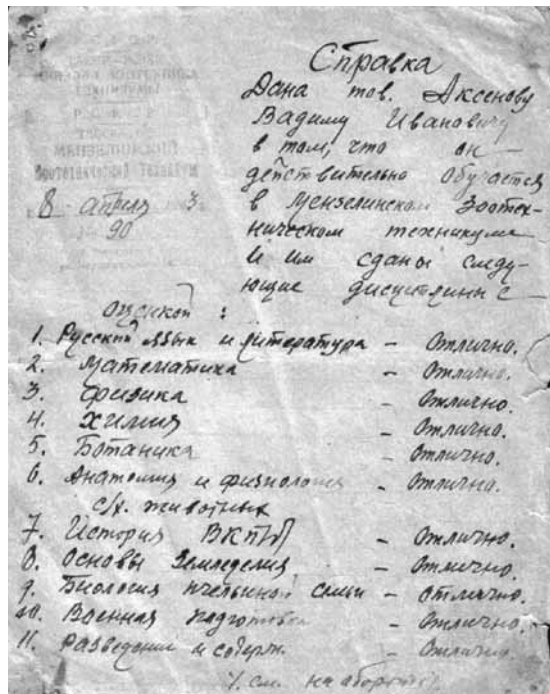 Справка
Дана тов. Аксенову
Вадиму Ивановичу
в том, что он
действительно обучается
в Мензелинском Зоотех-
ническом техникуме
и им сданы следу-
ющие дисциплины с
8 апреля 3
90
оценкой :
1. Русский язык и литература - Отлично.
2. Математика - Отлично.
3. Физика - Отлично.
4. Химия - Отлично.
5. Ботаника - Отлично.
6. Анатомия и физиология - Отлично.
с/х. животных
7. История ВКП/б/ - Отлично.
8. Основы Земледелия - Отлично.
9. Биология пчелиной семьи - Отлично.
10. Военная подготовка - Отлично.
11. Разведение и содерж. - Отлично
/. см. на обороте/.